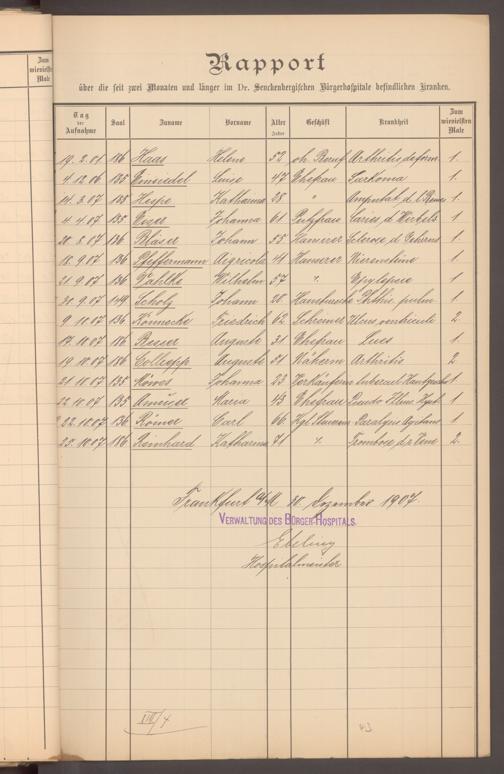 Zum
wievielsten
Male
Rapport
über die seit zwei Monaten und länger im Dr. Senckenbergischen Bürgerhospitale befindlichen Kranken.
Tag der Aufnahme Saal Zuname Vorname Alter Jahre Geschäft Krankheit Zum wievielsten Male
19. 2. 01 136 Haas Helene 52 oh. Beruf Arthritis deform 1
4. 12. 06 135 Einsiedel 47 Ehefrau Sarkoma 1
14. 3. 07 138 Hespe Katharina 38 " Amputat. d. l. 1
4. 4. 07 135 Johanna 61 Putzfrau Caries d. Wirbels 1
20. 5. 07 136 Bläser Johann 55 Sclerose d. Gehirns 1
18. 9. 07 136 Pfeffermann Agricola 41 Hausierer Nierensteine 1
21. 9. 07 136 Wilhelm 57 " Epylepsie 1
31. 9. 07 149 Scholz Johann 28 Phthis. pulm. 1
9. 11. 07 136 Könnecke Friedrich 62 Schreiner Ulcus ventricule 2
17. 11. 07 186 Besier Auguste 31 Ehefrau Lues 1
19. 10. 07 186 Auguste 51 Näherin Arthritis 2
21. 11. 07 135 Johanna 23 Verkäuferin 1
22. 11. 07 135 Maria 43 Ehefrau 1
22. 11. 07 136 Römer Carl 66 Paralysis Agitans 1
23. 10. 07 186 Reinhard Katharina 71 " Trombose d. Vene 2
Frankfurt a/M Dezember 1907.
VERWALTUNG DES BÜRGER-HOSPITALS.
Ebeling
Hospitalmeister